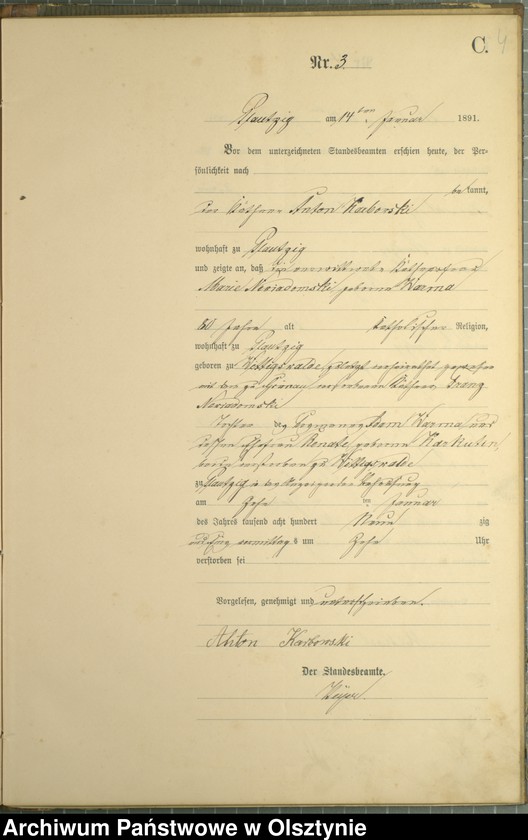 C. 4
Nr. 3.
Plautzig am 14ten Januar 1891.
Vor dem unterzeichneten Standesbeamten erschien heute, der Per-
sönlichkeit nach
bekannt,
der Käthner Anton Karbowski
wohnhaft zu Plautzig
und zeigte an, daß die verwittwete Käthnerfrau
Marie geborene
80 Jahre alt katholischer Religion,
wohnhaft zu Plautzig
geboren zu zuletzt verheirathet gewesen
mit dem zu verstorbenen Käthner Franz
Tochter des Adam und
dessen Ehefrau Renate, geborene
beide verstorben zu
zu Plautzig in des Anzeigenden Behausung
am Zehn ten Januar
des Jahres tausend acht hundert Neun zig
und Eins vormittags um Zehn Uhr
verstorben sei
Vorgelesen, genehmigt und unterschrieben.
Anton Karbowski
Der Standesbeamte.
Archiwum Państwowe w Olsztynie